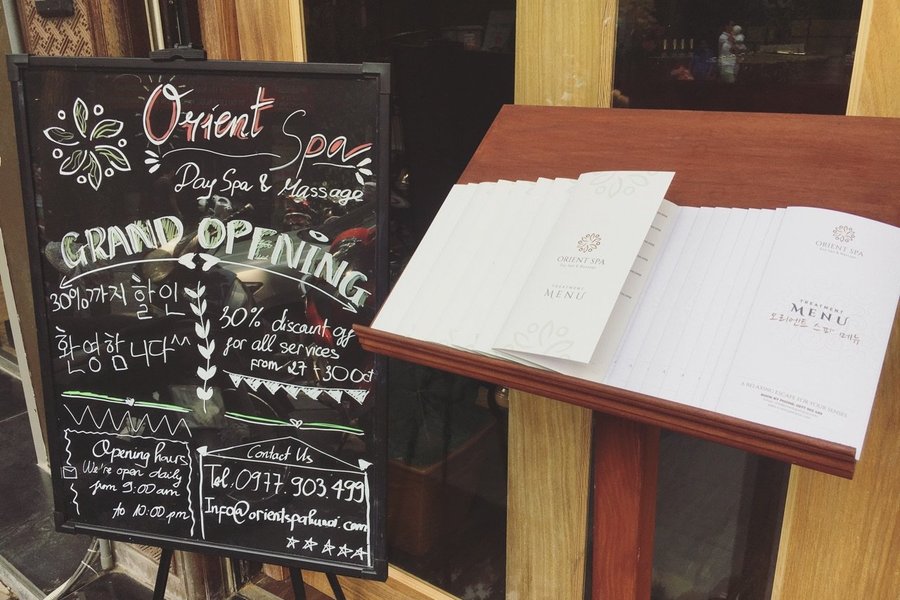 Orient Spa
Day Spa & Massage
GRAND OPENING
30%까지 할인
환영합니다^^
30% discount off
for all services
from 27 - 30 Oct
Opening hours
We're open daily
from 9:00 am
to 10:00 pm
Contact Us
Tel: 0977.903.499
ORIENT SPA
Day Spa & Massage
TREATMENT
MENU
ORIENT SPA
TREATMENT
MENU
오리엔트 스파 메뉴
A RELAXING ESCAPE FOR YOUR SENSES